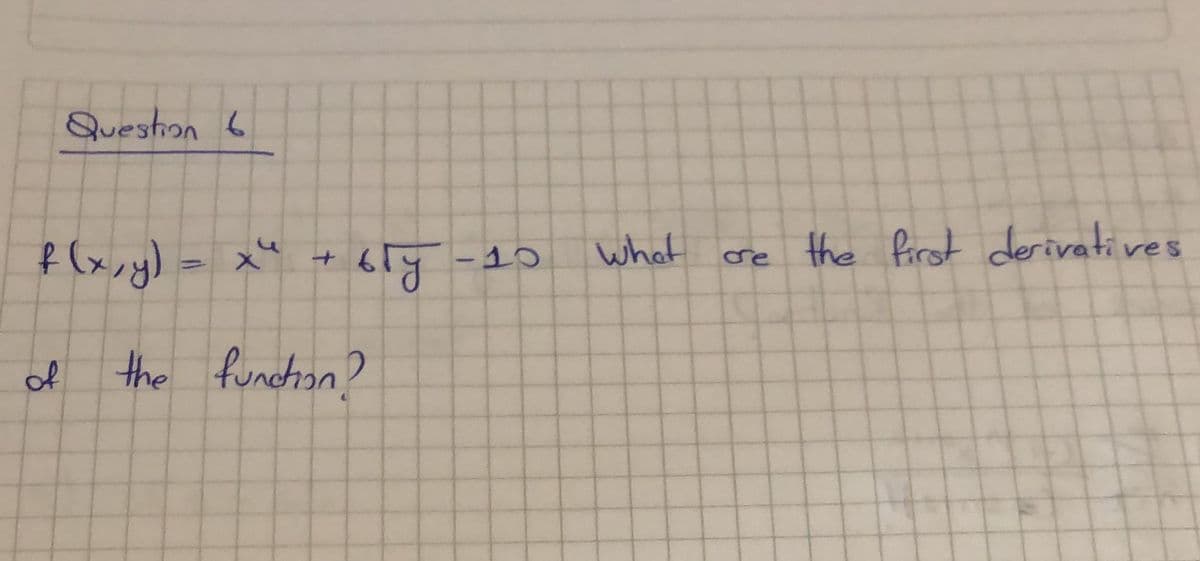 Question 6
f(x,y) = x⁴ + 6√y - 10 What are the first derivatives
of the function?